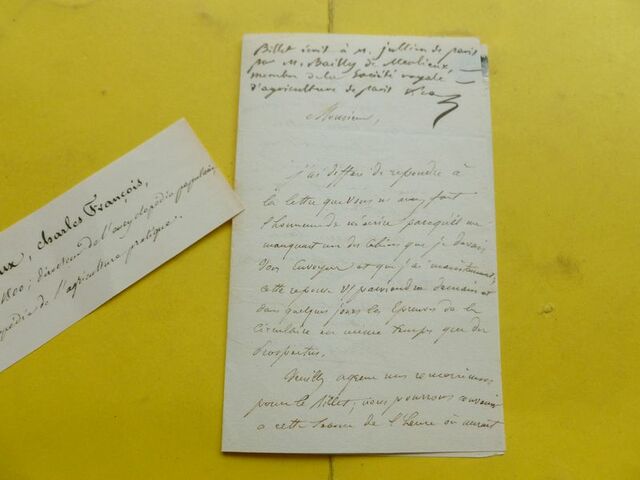 Billet écrit à M. Jullien de Paris
par M. Bailly de Merlieux,
membre de la Société royale
d'agriculture de Paris
Monsieur,
j'ai différé de répondre à
la lettre que vous m'avez fait
l'honneur de m'écrire parcequ'il me
manquait un des Cahiers que je devais
vous Envoyer et que j'ai maintenant;
cette reponse vs parviendra demain et
dans quelques jours les Epreuves de la
Circulaire en même temps que du
Prospectus.
Veuillez agréer mes remerciemens
pour le billet, nous pourrons convenir
a cette Séance de l'heure où aurait
ux, Charles François,
1800; directeur de l'encyclopédie populaire,
opédie de l'agriculture pratique.